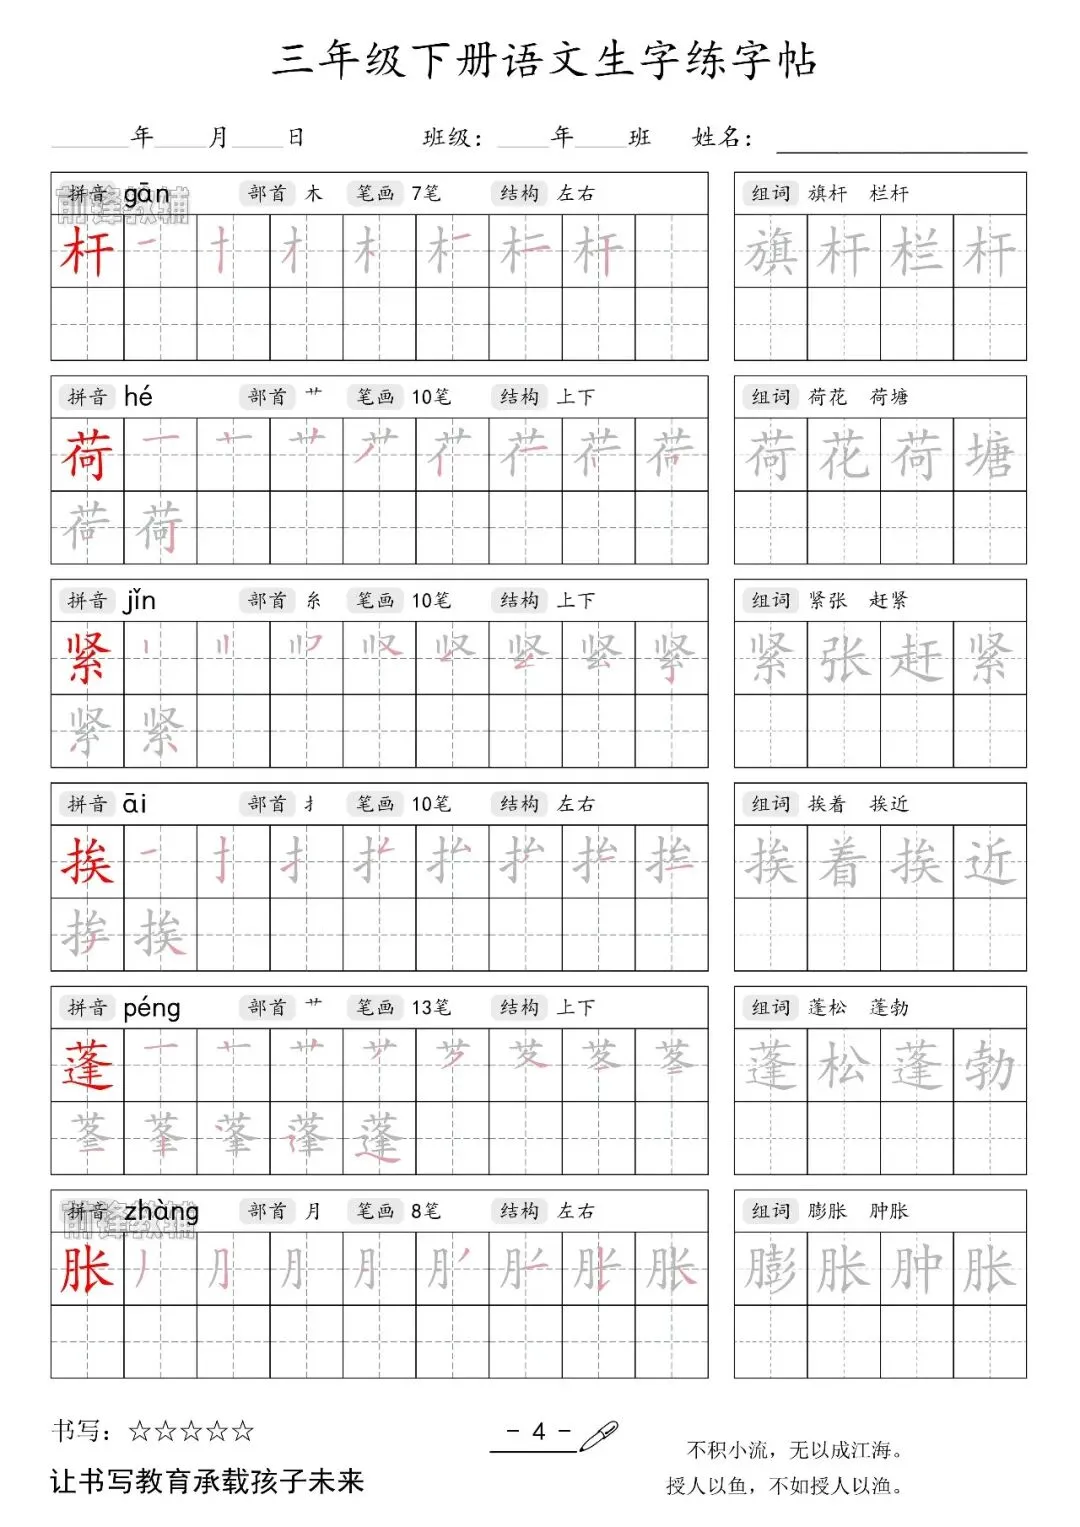 三年级下册语文生字练字帖
年 月 日 班级： 年 班 姓名：
前锋教辅
拼音 gān 部首 木 笔画 7笔 结构 左右 组词 旗杆 栏杆
杆 旗 杆 栏 杆
拼音 hé 部首 艹 笔画 10笔 结构 上下 组词 荷花 荷塘
荷 荷 花 荷 塘
荷
拼音 jǐn 部首 糸 笔画 10笔 结构 上下 组词 紧张 赶紧
紧 紧 张 赶 紧
紧
拼音 āi 部首 扌 笔画 10笔 结构 左右 组词 挨着 挨近
挨 挨 着 挨 近
挨
拼音 péng 部首 艹 笔画 13笔 结构 上下 组词 蓬松 蓬勃
蓬 蓬 松 蓬 勃
蓬
前锋教辅
拼音 zhàng 部首 月 笔画 8笔 结构 左右 组词 膨胀 肿胀
胀 胀 膨 胀 肿 胀
书写：☆☆☆☆☆
- 4 -
不积小流，无以成江海。
让书写教育承载孩子未来
授人以鱼，不如授人以渔。